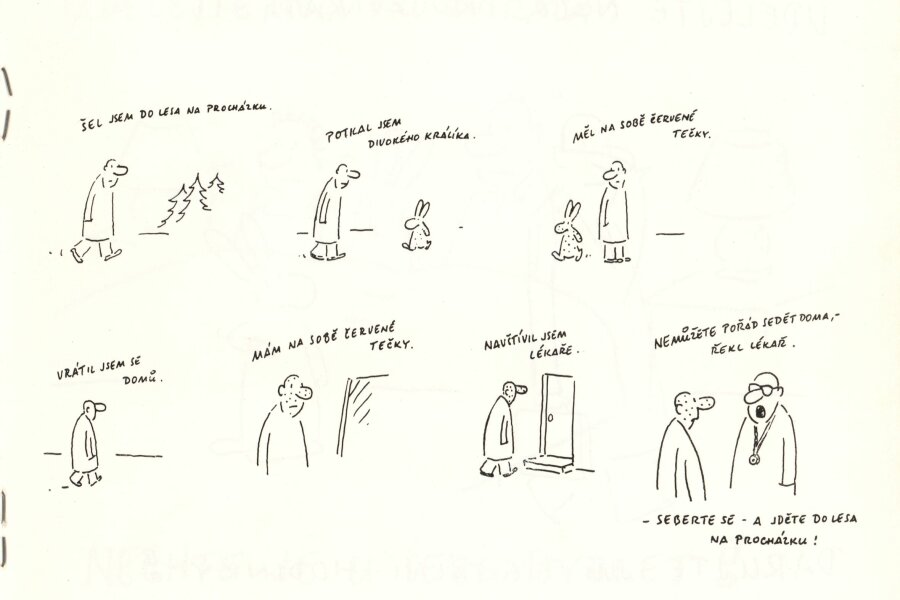 ŠEL JSEM DO LESA NA PROCHÁZKU.
POTKAL JSEM
DIVOKÉHO KRÁLÍKA.
MĚL NA SOBĚ ČERVENÉ
TEČKY.
VRÁTIL JSEM SE
DOMŮ.
MÁM NA SOBĚ ČERVENÉ
TEČKY.
NAVŠTÍVIL JSEM
LÉKAŘE.
NEMŮŽETE POŘÁD SEDĚT DOMA,-
ŘEKL LÉKAŘ.
- SEBERTE SE - A JDĚTE DO LESA
NA PROCHÁZKU!